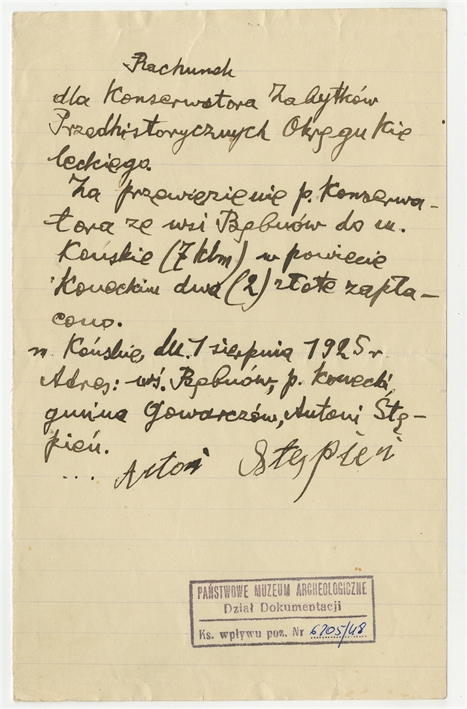 Rachunek
dla Konserwatora Zabytków
Przedhistorycznych Okręgu Kie
leckiego.
Za przewiezienie p. Konserwa-
tora ze wsi Bębnów do m.
Końskie (7 klm) w powiecie
Koneckim dwa (2) złote zapła-
cono.
m. Końskie, dn. 1 sierpnia 1925 r.
Adres: wś. Bębnów, p. konecki,
gmina Gowarczów, Antoni Stę-
pień.
... Antoni Stępień
PAŃSTWOWE MUZEUM ARCHEOLOGICZNE
Dział Dokumentacji
Ks. wpływu poz. Nr 6705/48